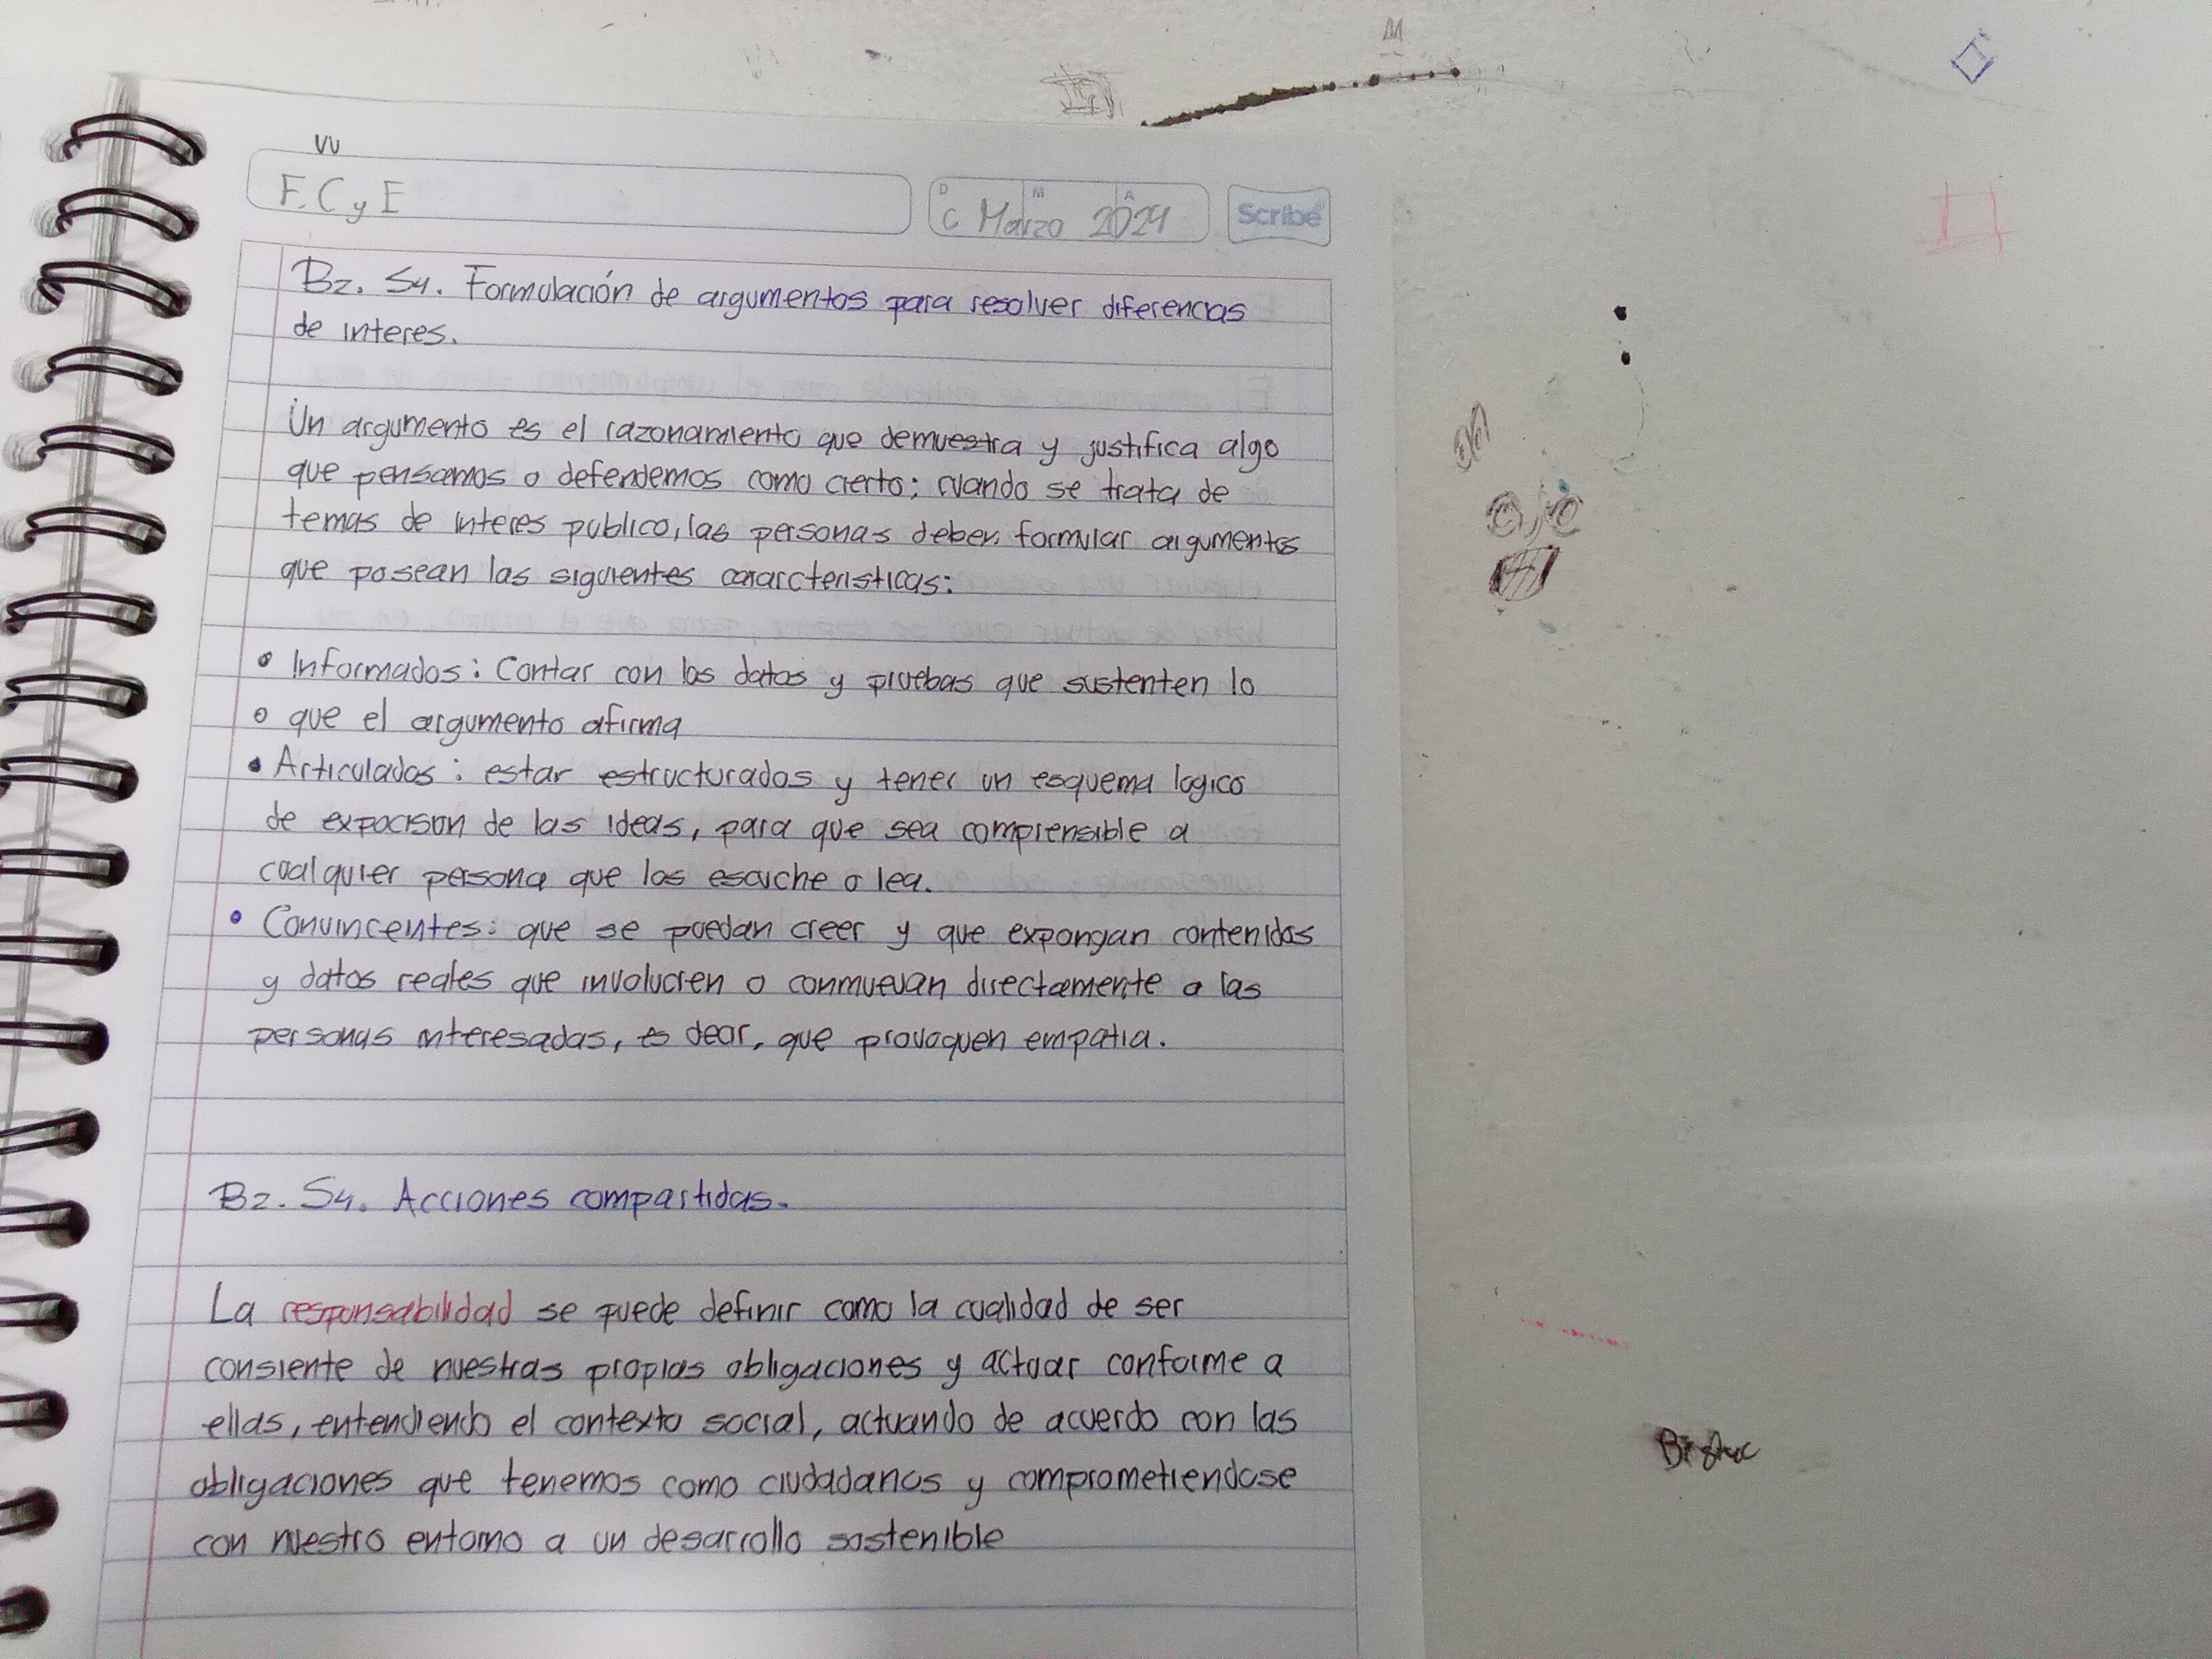 F. C y E
D M A
C Marzo 2024
Scribe
B2. S4. Formulación de argumentos para resolver diferencias
de interes.
Un argumento es el razonamiento que demuestra y justifica algo
que pensamos o defendemos como cierto; cuando se trata de
temas de interes publico, las personas deben formular argumentos
que posean las siguientes cararcteristicas:
• Informados: Contar con los datos y pruebas que sustenten lo
que el argumento afirma
• Articulados: estar estructurados y tener un esquema logico
de expocision de las ideas, para que sea comprensible a
cualquier persona que los escuche o lea.
• Convincentes: que se puedan creer y que expongan contenidos
y datos reales que involucren o conmuevan directamente a las
personas interesadas, es decir, que provoquen empatia.
B2. S4. Acciones compartidas.
La responsabilidad se puede definir como la cualidad de ser
consiente de nuestras propias obligaciones y actuar conforme a
ellas, entendiendo el contexto social, actuando de acuerdo con las
obligaciones que tenemos como ciudadanos y comprometiendose
con nuestro entorno a un desarrollo sostenible